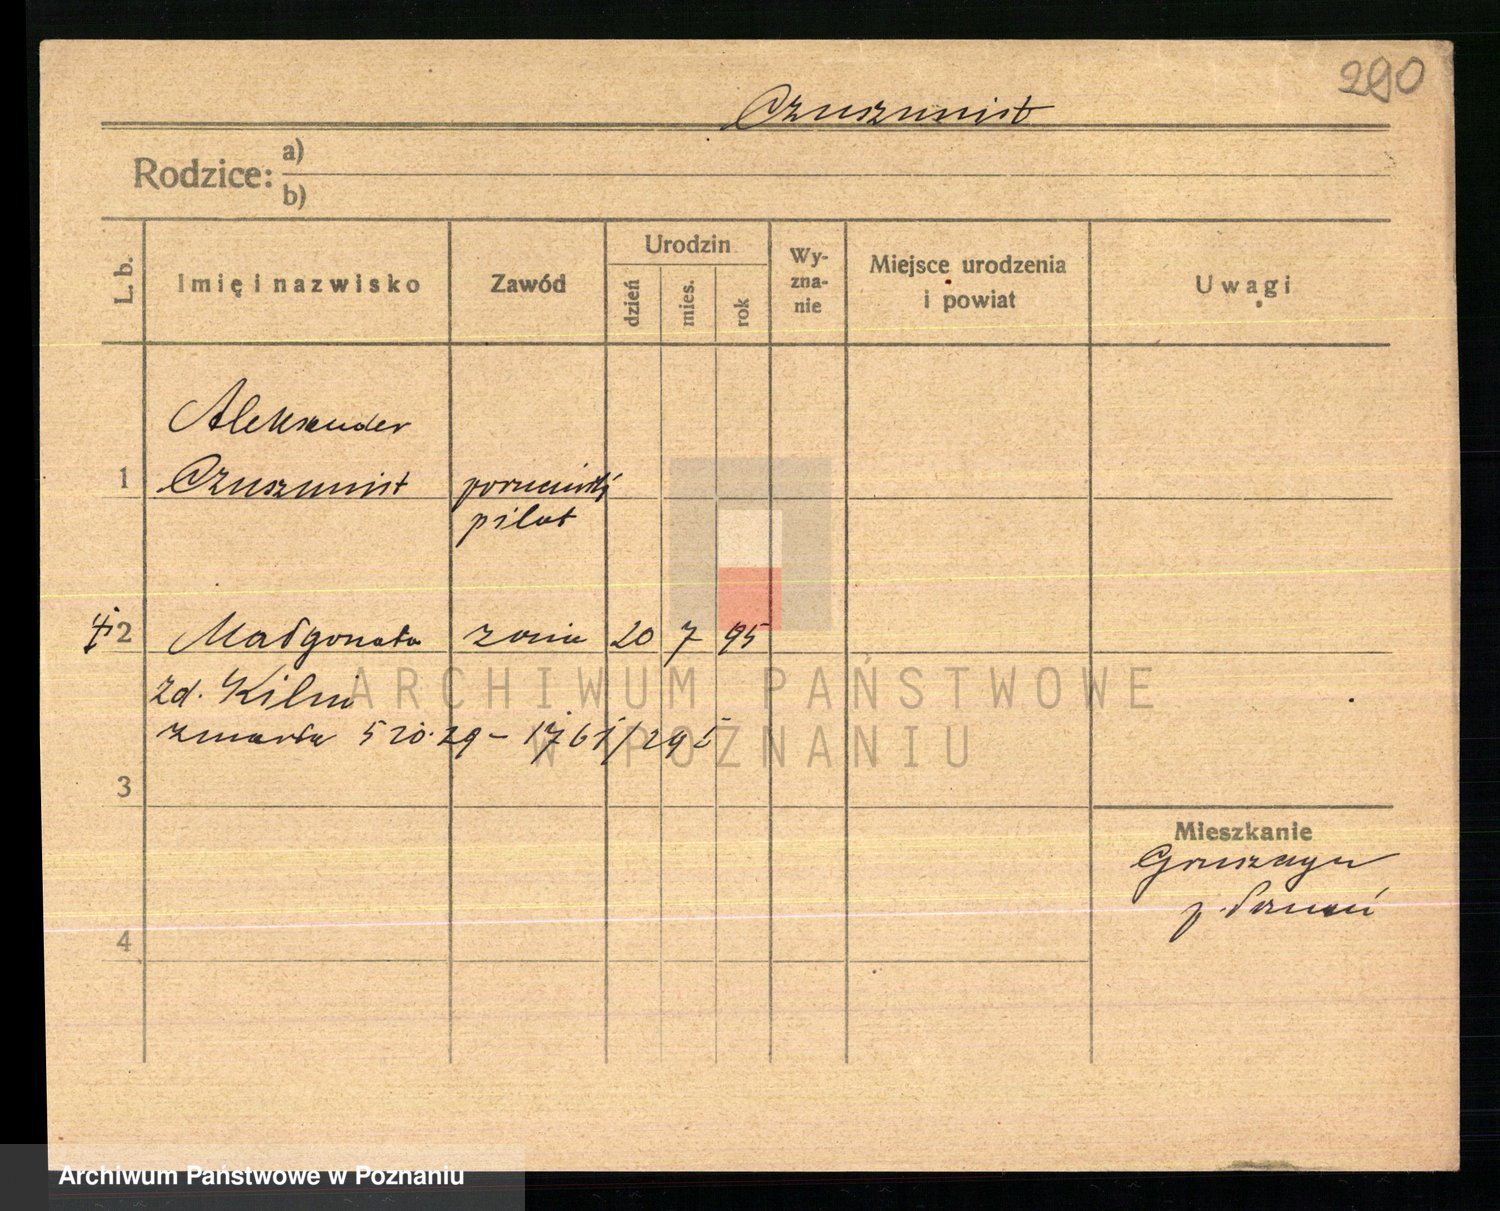 290
Czuszunist
Rodzice: a)
b)
L. b.
Imię i nazwisko
Zawód
Urodzin
dzień
mies.
rok
Wy-
zna-
nie
Miejsce urodzenia
i powiat
Uwagi
Aleksander
1 Czuszunist
pilot
2 Małgorzata żona 20 7 95
zd.
zmarła 5 10 29 –
ARCHIWUM PAŃSTWOWE
W POZNANIU
3
Mieszkanie
p. Poznań
4
Archiwum Państwowe w Poznaniu